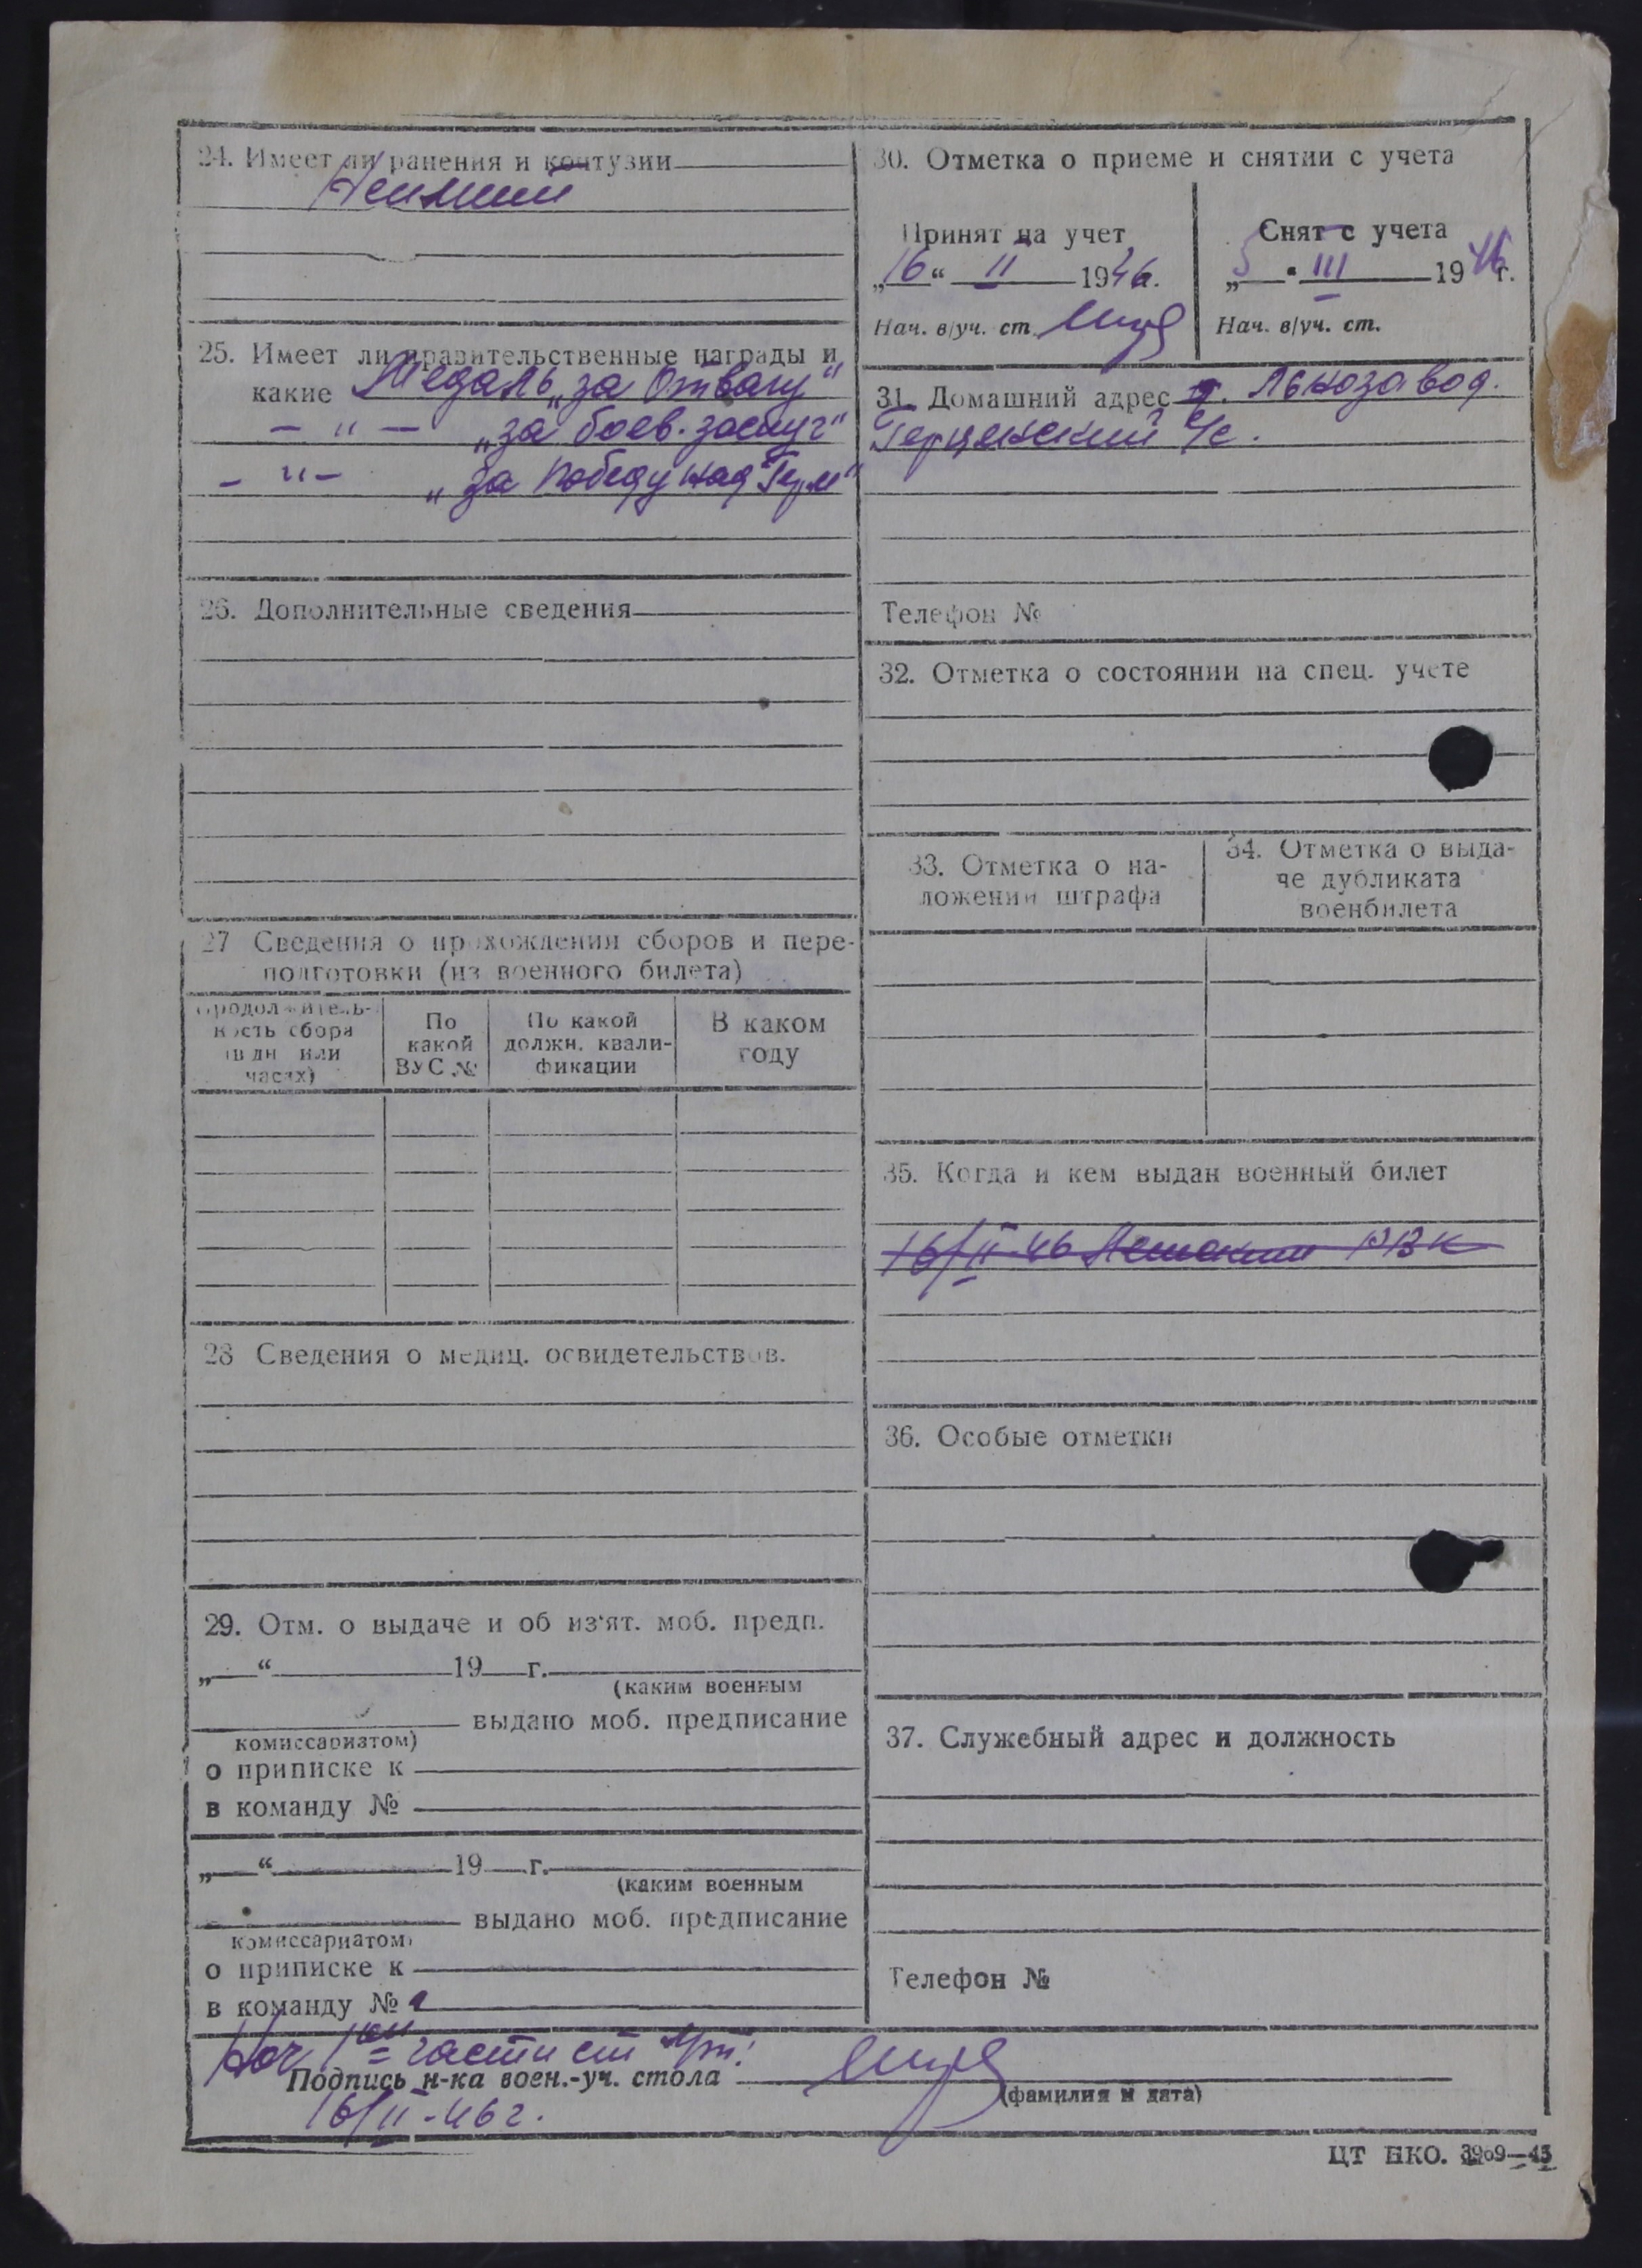 24. Имеет ли ранения и контузии
25. Имеет ли правительственные награды и
какие Медаль „за Отвагу“
— " — „за боев. заслуг“
— " — „за победу над Герм“
26. Дополнительные сведения
27 Сведения о прохождении сборов и пере-
подготовки (из военного билета)
Продолжитель-
ность сбора
(в дн или
часах)
По
какой
ВУС №
По какой
должн. квали-
фикации
В каком
году
28 Сведения о медиц. освидетельствов.
29. Отм. о выдаче и об из'ят. моб. предп.
„ “ 19 г.
(каким военным
выдано моб. предписание
комиссариатом)
о приписке к
в команду №
„ “ 19 г.
(каким военным
выдано моб. предписание
комиссариатом)
о приписке к
в команду №
30. Отметка о приеме и снятии с учета
Принят на учет
„16“ II 1946г.
Нач. в/уч. ст.
Снят с учета
„5" III 1946г.
Нач. в/уч. ст.
31. Домашний адрес Льнозавод.
с/с.
Телефон №
32. Отметка о состоянии на спец. учете
33. Отметка о на-
ложении штрафа
34. Отметка о выда-
че дубликата
военбилета
35. Когда и кем выдан военный билет
16/II-46 РВК
36. Особые отметки
37. Служебный адрес и должность
Телефон №
Нач 1ой части
Подпись н-ка воен.-уч. стола
(фамилия и дата)
16/II-46г.
ЦТ НКО. 3909—45